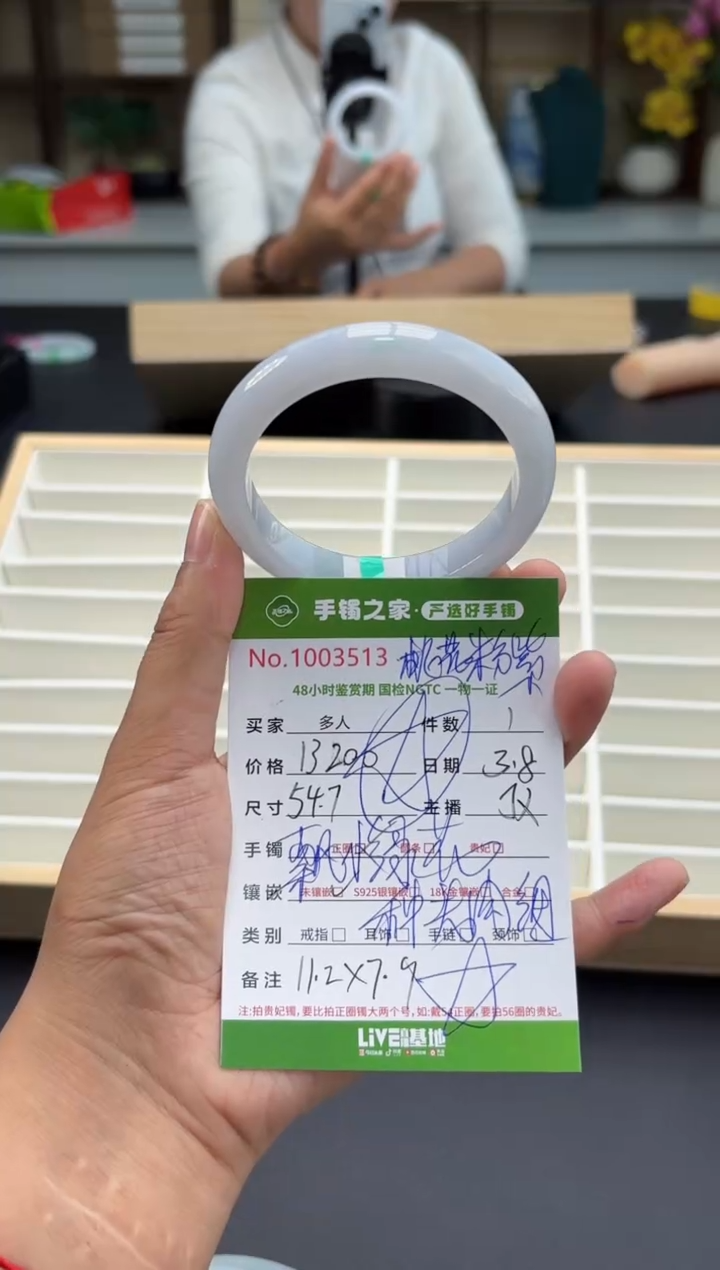 手镯之家·严选好手镯
No.1003513 桃花粉紫
48小时鉴赏期 国检NGTC 一物一证
买家 多人 件数 1
价格 13200 日期 3.8
尺寸 54.7 主播
手镯 正圈□ 贵妃□
飘水绿花
镶嵌 未镶嵌□ S925银镶嵌□ 18K金镶嵌□ 合金□
种老肉细
类别 戒指□ 耳饰□ 手链□ 颈饰□
备注 11.2×7.9
注:拍贵妃镯,要比拍正圈镯大两个号,如:戴54正圈,要拍56圈的贵妃。
LIVE 基地